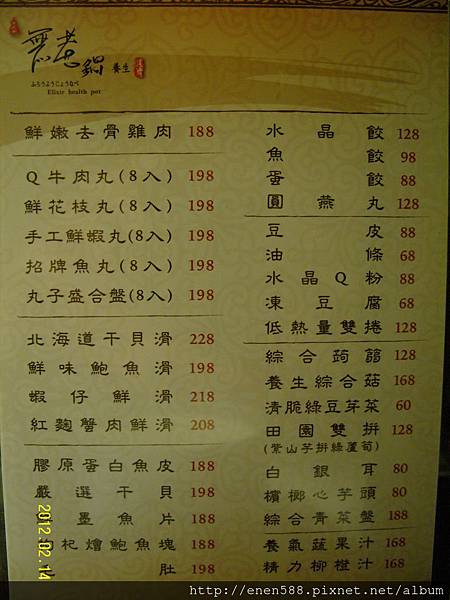 無老鍋 養生
ふろうようじょうなべ
Elixir health pot
鮮嫩去骨雞肉 188
Q牛肉丸(8入) 198
鮮花枝丸(8入) 198
手工鮮蝦丸(8入) 198
招牌魚丸(8入) 198
丸子盛合盤(8入) 198
北海道干貝滑 228
鮮味鮑魚滑 198
蝦仔鮮滑 218
紅麴蟹肉鮮滑 208
膠原蛋白魚皮 188
嚴選干貝 198
墨魚片 188
杞燴鮑魚塊 188
肚 198
水晶餃 128
魚餃 98
蛋餃 88
圓燕丸 128
豆皮 88
油條 68
水晶Q粉 88
凍豆腐 68
低熱量雙捲 128
綜合蒟蒻 128
養生綜合菇 168
清脆綠豆芽菜 60
田園雙拼 128
(紫山芋拼綠蘆筍)
白銀耳 80
檳榔心芋頭 80
綜合青菜盤 188
養氣蔬果汁 168
精力柳橙汁 168
2012.02.14
http://enen588.pixnet.net/album